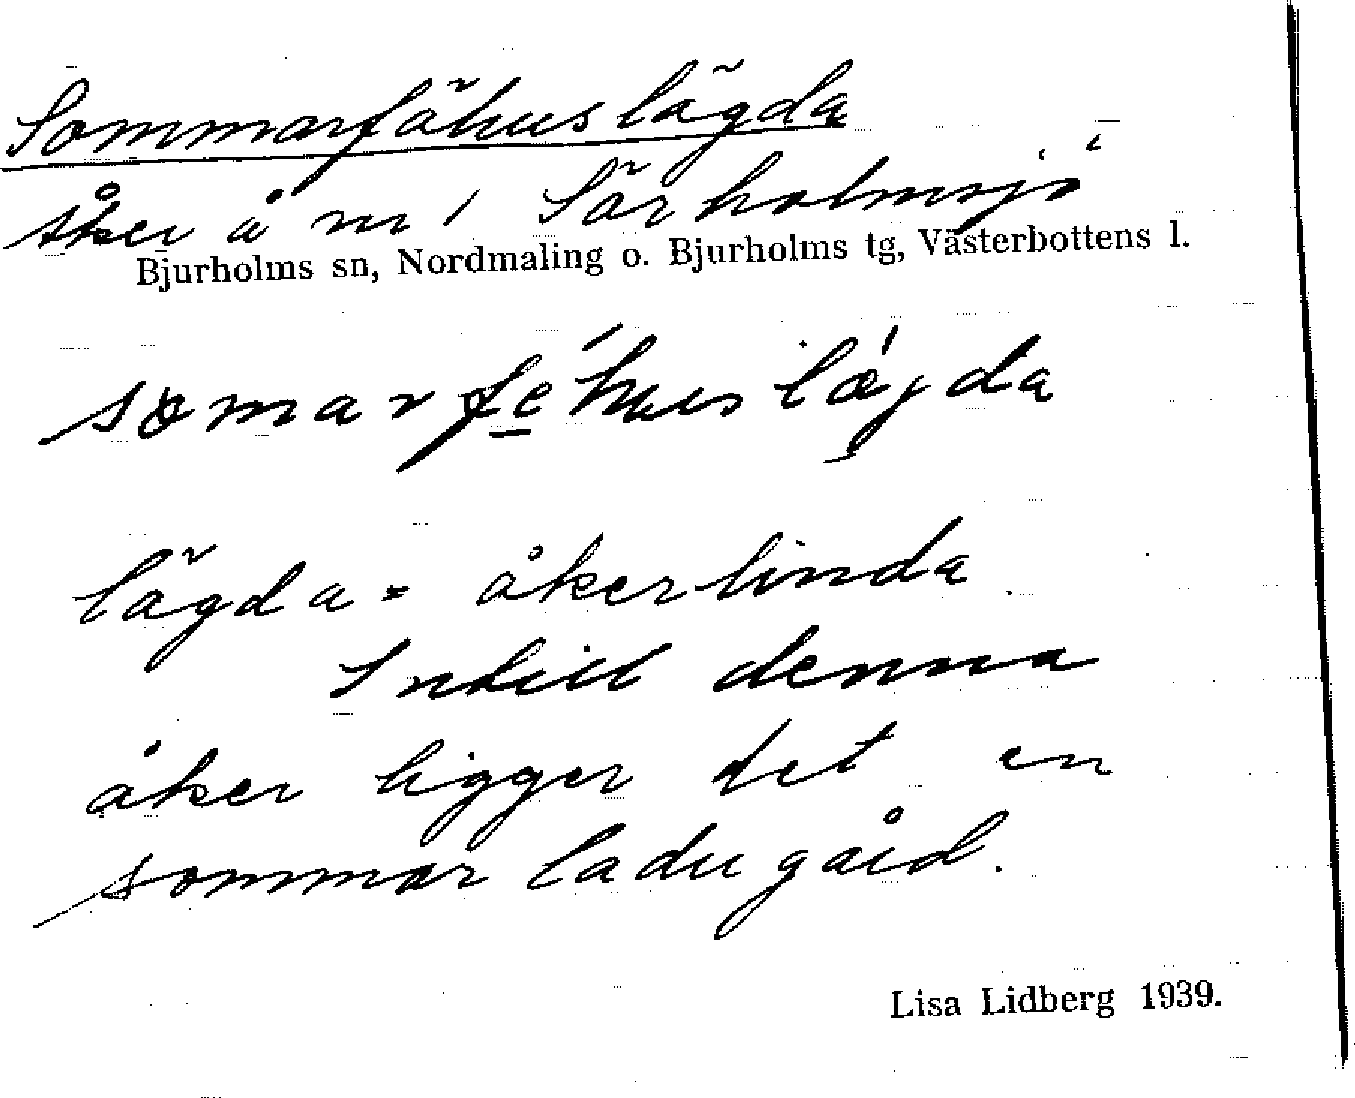 Sommarfähuslägda
åker å nr 1 Särholmsjö
Bjurholms sn, Nordmaling o. Bjurholms tg, Västerbottens l.
somarfe´huslǽgda
lägda = åkerlinda
Intill denna
åker ligger det en
sommarladugård.
Lisa Lidberg 1939.